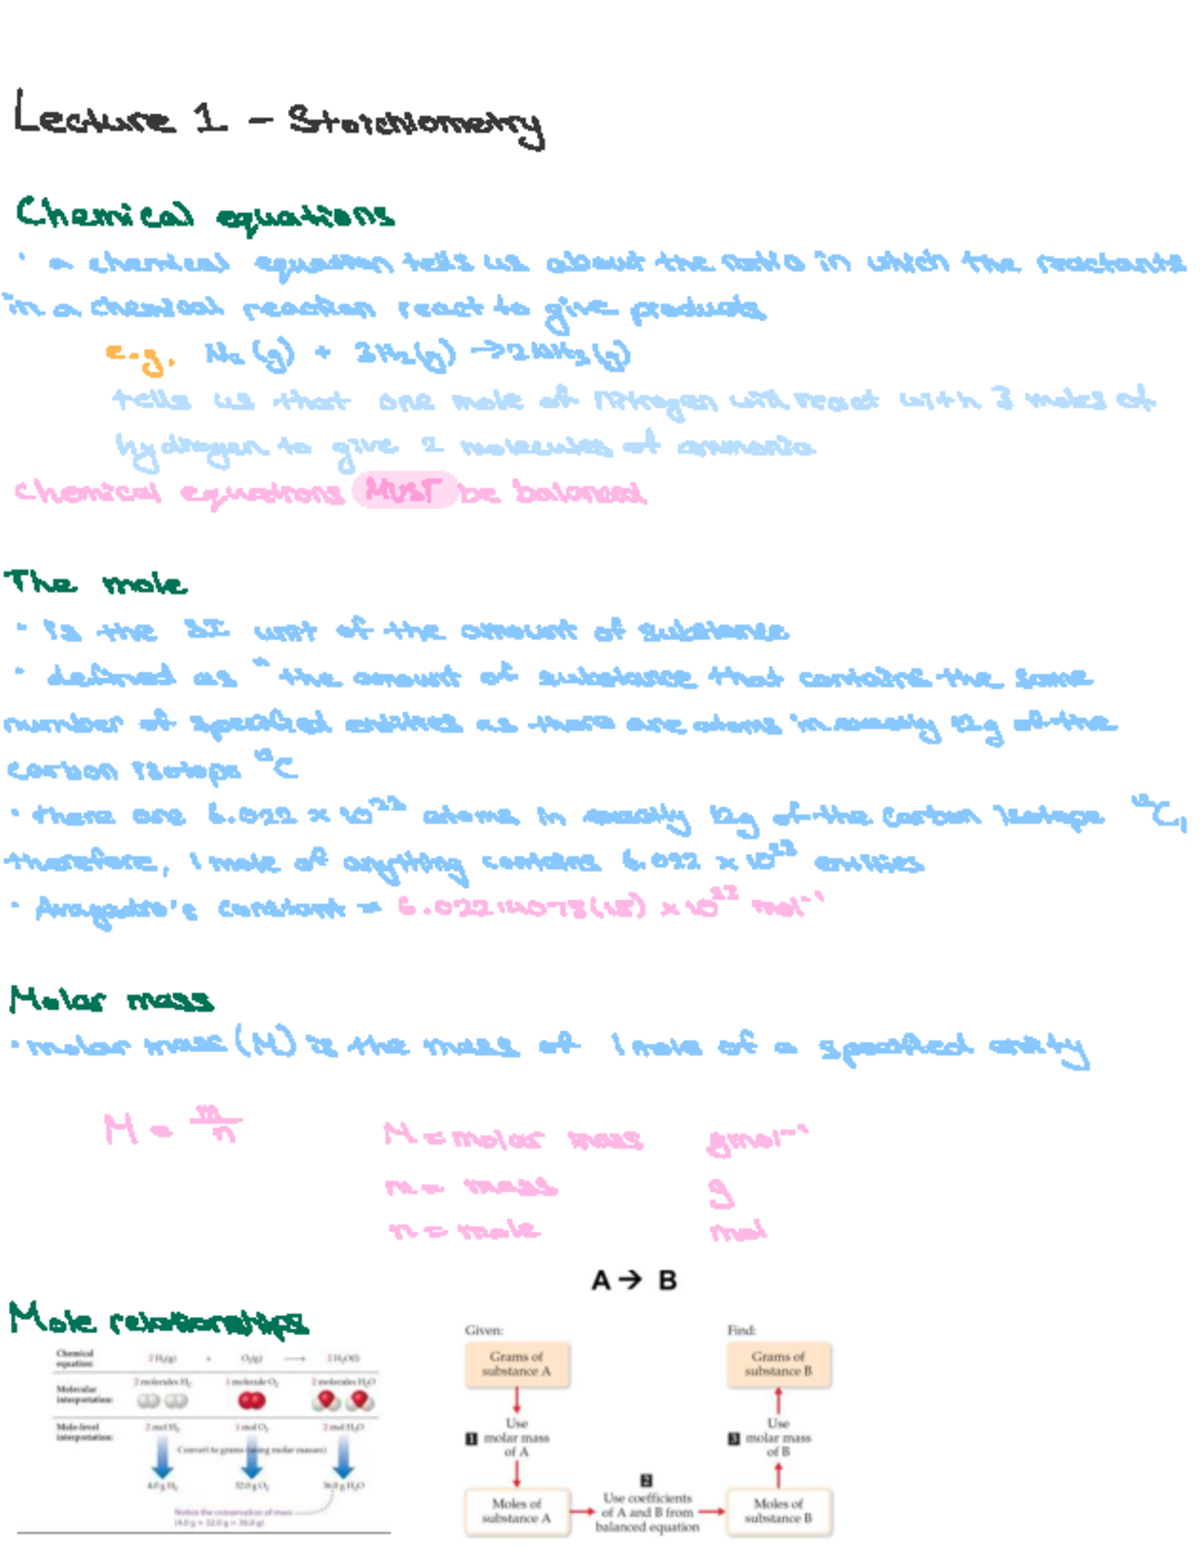 Lecture 1 - Stoichiometry
Chemical equations
• a chemical equation tells us about the ratio in which the reactants
in a chemical reaction react to give products
e.g. N₂(g) + 3H₂(g) → 2NH₃(g)
tells us that one mole of nitrogen will react with 3 moles of
hydrogen to give 2 molecules of ammonia
Chemical equations MUST be balanced
The mole
• is the SI unit of the amount of substance
• defined as "the amount of substance that contains the same
number of specified entities as there are atoms in exactly 12g of the
carbon isotope ¹²C
• there are 6.022 × 10²³ atoms in exactly 12g of the carbon isotope ¹²C,
therefore, 1 mole of anything contains 6.022 × 10²³ entities
• Avogadro's constant = 6.02214078(18) × 10²³ mol⁻¹
Molar mass
• molar mass (M) is the mass of 1 mole of a specified entity
M = m/n
M = molar mass gmol⁻¹
m = mass g
n = mole mol
A → B
Mole relationships
Chemical equation: 2 H₂(g) + O₂(g) → 2 H₂O(l)
Molecular interpretation: 2 molecules H₂ 1 molecule O₂ 2 molecules H₂O
Mole-level interpretation: 2 mol H₂ 1 mol O₂ 2 mol H₂O
Convert to grams (using molar masses)
4.0 g H₂ 32.0 g O₂ 36.0 g H₂O
Notice the conservation of mass
(4.0 g + 32.0 g = 36.0 g)
Given: Find:
Grams of substance A
Grams of substance B
1 Use molar mass of A
3 Use molar mass of B
Moles of substance A
2 Use coefficients of A and B from balanced equation
Moles of substance B